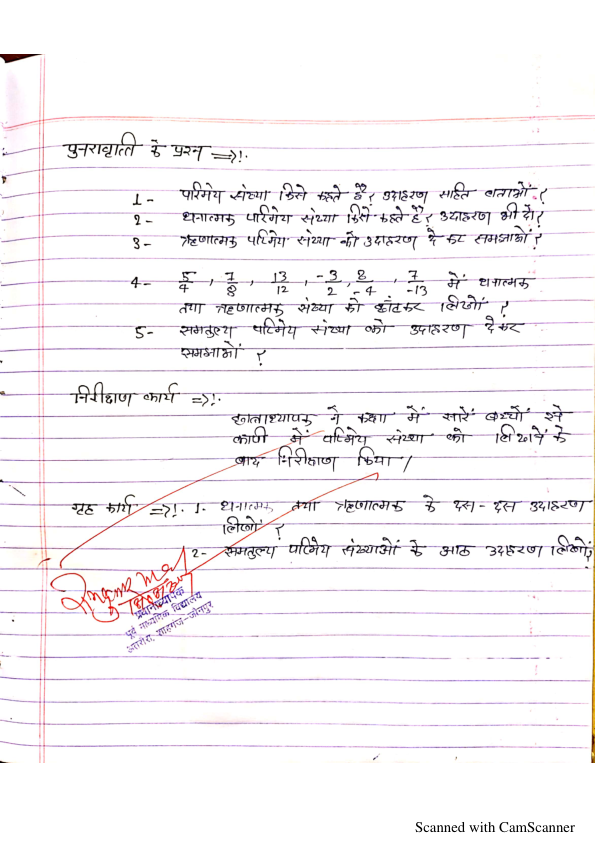 पुनरावृत्ति के प्रश्न ⇒!·
1 - परिमेय संख्या किसे कहते है? उदाहरण सहित बताओं ?
2 - धनात्मक परिमेय संख्या किसे कहते है? उदाहरण भी दो?
3 - ऋणात्मक परिमेय संख्या को उदाहरण दे कर समझाओं ?
4 - 5/4 , 7/8 , 13/12 , -3/2 , 8/-4 , 7/-13 में धनात्मक
तथा ऋणात्मक संख्या को छाँटकर लिखों ?
5 - समतुल्य परिमेय संख्या को उदाहरण देकर
समझाओं ?
निरीक्षण कार्य ⇒!·
छात्राध्यापक ने कक्षा में सारें बच्चों
कापी में परिमेय संख्या को लिखाने के
बाद निरीक्षण किया /
गृह कार्य ⇒!· 1. धनात्मक तथा ऋणात्मक के दस - दस उदाहरण
लिखों ?
2 - समतुल्य परिमेय संख्याओं के आठ उदाहरण लिखों?
प्रधानाध्यापक
पूर्व माध्यमिक विद्यालय
शाहगंज-जौनपुर
Scanned with CamScanner